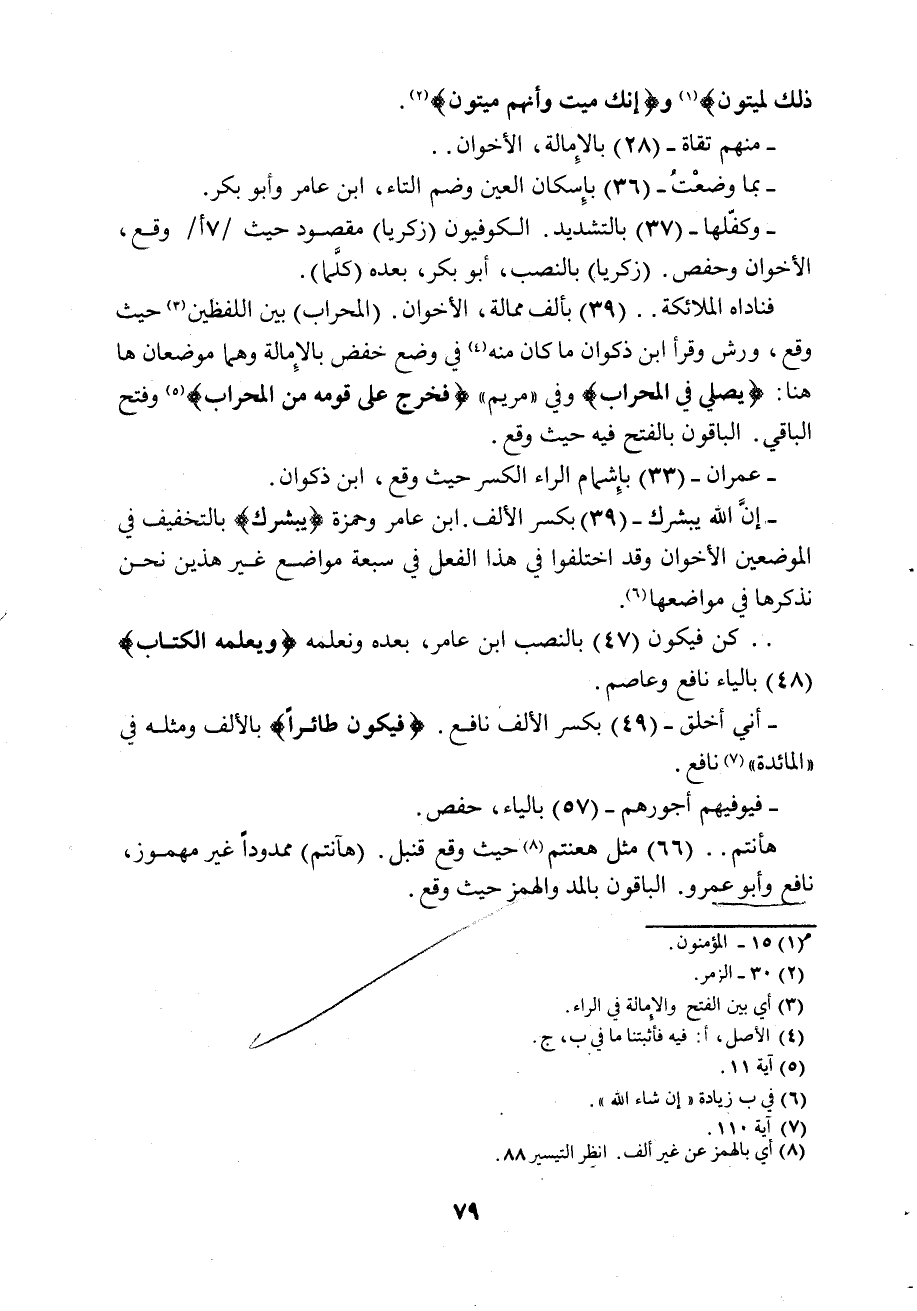 ذلك لميتون﴾(١) و﴿إنك ميت وأنهم ميتون﴾(٢).
ـ منهم تقاة ـ (٢٨) بالإمالة، الأخوان . .
ـ بما وضعْتُ ـ (٣٦) بإسكان العين وضم التاء، ابن عامر وأبو بكر.
ـ وكفّلها ـ (٣٧) بالتشديد. الكوفيون (زكريا) مقصود حيث /٧أ/ وقع،
الأخوان وحفص. (زكريا) بالنصب، أبو بكر، بعده (كلَّما).
فناداه الملائكة . . (٣٩) بألف ممالة، الأخوان. (المحراب) بين اللفظين(٣) حيث
وقع، ورش وقرأ ابن ذكوان ما كان منه(٤) في وضع خفض بالإمالة وهما موضعان ها
هنا: ﴿يصلي في المحراب﴾ وفي «مريم» ﴿فخرج على قومه من المحراب﴾(٥) وفتح
الباقي. الباقون بالفتح فيه حيث وقع.
ـ عمران ـ (٣٣) بإشمام الراء الكسر حيث وقع، ابن ذكوان.
ـ إنَّ الله يبشرك ـ (٣٩) بكسر الألف. ابن عامر وحمزة ﴿يبشرك﴾ بالتخفيف في
الموضعين الأخوان وقد اختلفوا في هذا الفعل في سبعة مواضع غير هذين نحن
نذكرها في مواضعها(٦).
. . كن فيكون (٤٧) بالنصب ابن عامر، بعده ونعلمه ﴿ويعلمه الكتاب﴾
(٤٨) بالياء نافع وعاصم.
ـ أني أخلق ـ (٤٩) بكسر الألف نافع. ﴿فيكون طائراً﴾ بالألف ومثله في
«المائدة»(٧) نافع.
ـ فيوفيهم أجورهم ـ (٥٧) بالياء، حفص.
هأنتم . . (٦٦) مثل هعنتم(٨) حيث وقع قنبل. (هآنتم) ممدوداً غير مهموز،
نافع وأبو عمرو. الباقون بالمد والهمز حيث وقع.
(١) ١٥ ـ المؤمنون.
(٢) ٣٠ ـ الزمر.
(٣) أي بين الفتح والإمالة في الراء.
(٤) الأصل، أ: فيه فأثبتنا ما في ب، ج.
(٥) آية ١١.
(٦) في ب زيادة «إن شاء الله».
(٧) آية ١١٠.
(٨) أي بالهمز عن غير ألف. انظر التيسير ٨٨.
٧٩